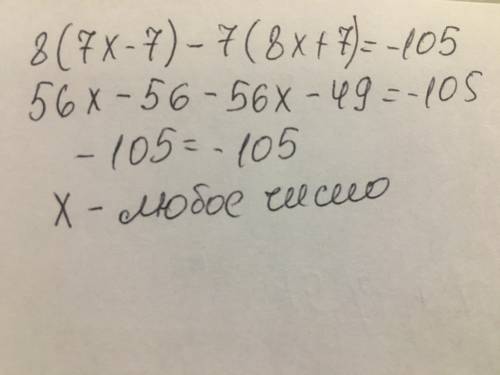 8(7x-7)-7(8x+7)=-105
56x-56-56x-49=-105
-105=-105
x - любое число